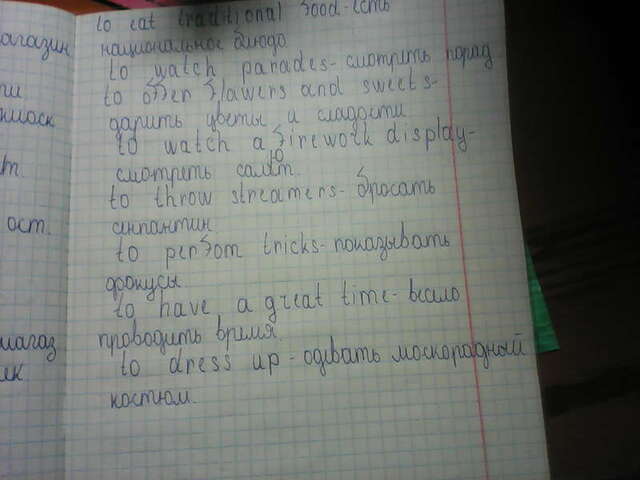 агазин
киоск
ост.
магаз
ик.
to eat traditional food-есть
национальное блюдо
to watch parades-смотрить парад
to offer flawers and sweets-
дарить цветы и сладости
to watch a firework display-
смотрить салют.
to throw streamers-бросать
синпантин
to perfom tricks-показывать
фокусы.
to have a great time-весило
проводить время.
to dress up-одевать москорадный
костюм.